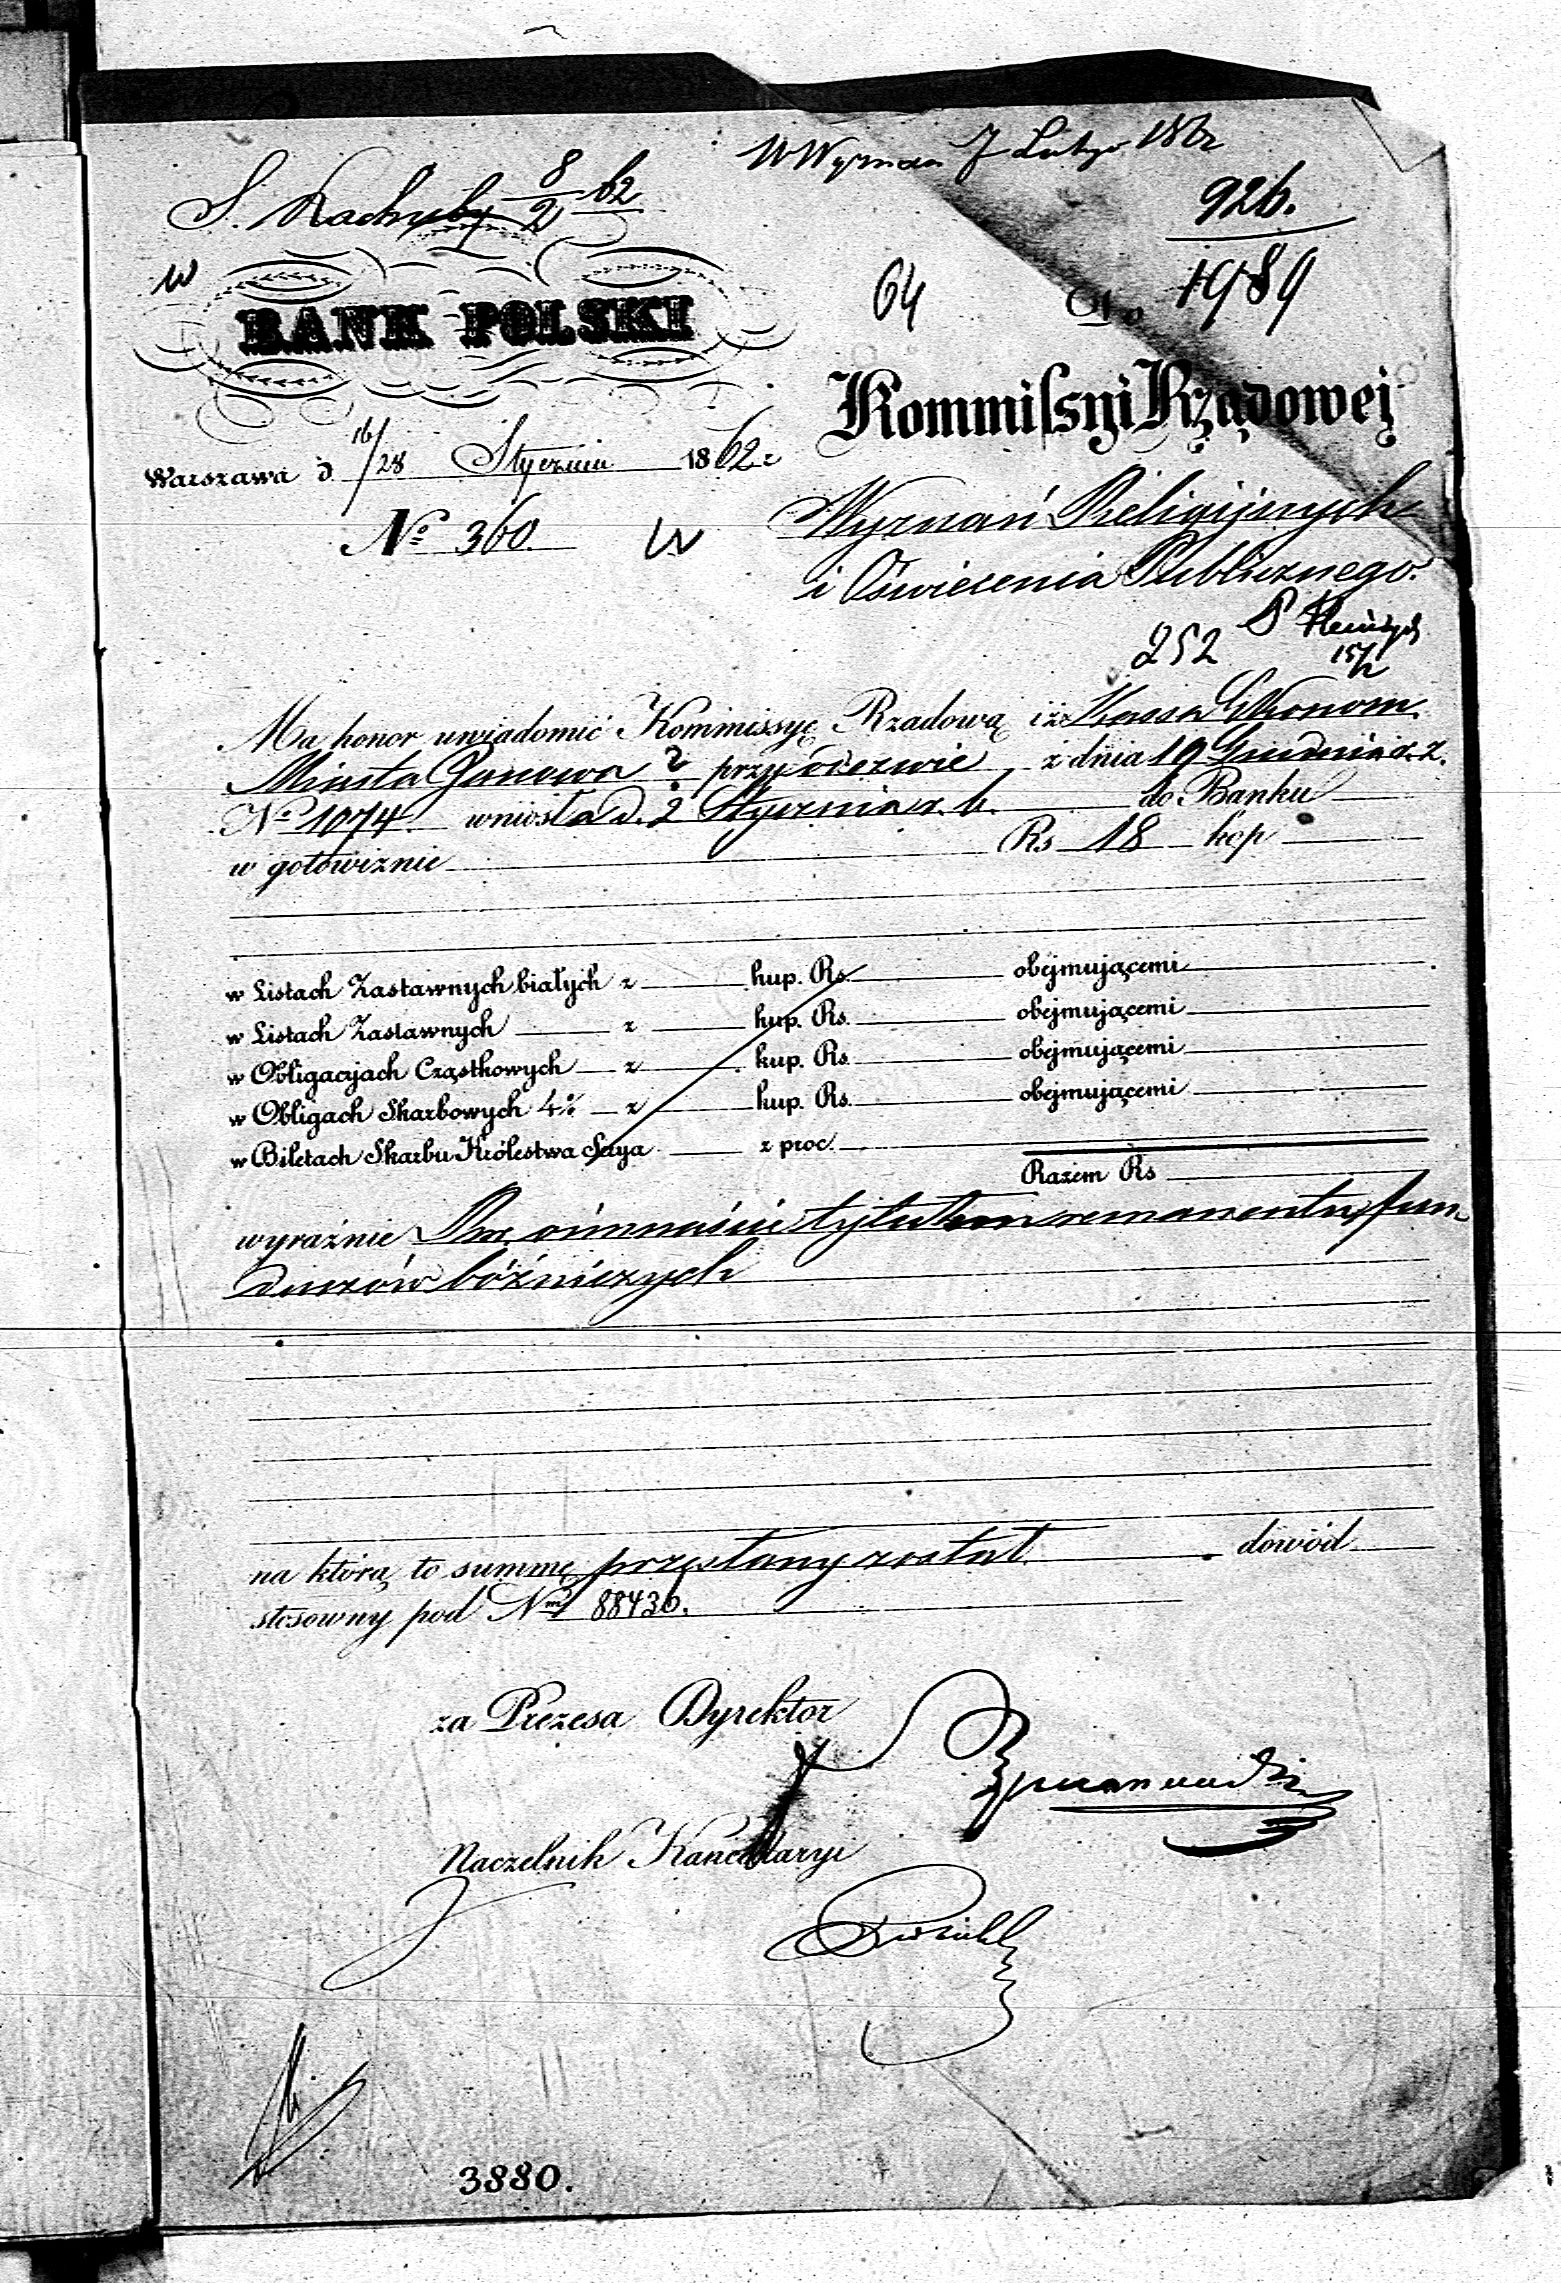 W Wyznan 7 Lutego 1862
S. Rachuby 8/2 62
926.
1989
w
64
Do
BANK POLSKI
Kommissyi Rządowej
Warszawa d. 16/28 Stycznia 1862 r
Wyznań Religijnych
No 360.
w
i Oświecenia Publicznego.
252
15/2
Ma honor uwiadomić Kommissyę Rządową iż Kassa Ekonom.
Miasta Janowa ? przy odezwie z dnia 19 Grudnia r. z.
No 1074 wniosła d. 2 Stycznia r. b. do Banku
w gotowiznie Rs 18 kop
w Listach Zastawnych białych z kup. Rs. obejmującemi
w Listach Zastawnych z kup. Rs. obejmującemi
w Obligacyjach Cząstkowych z kup. Rs. obejmującemi
w Obligach Skarbowych 4% z kup. Rs. obejmującemi
w Biletach Skarbu Królestwa Serya z proc.
Razem Rs
wyraźnie Rsr. ośmnaście tytułem remanentu, fun
duszów bóźniczych
na którą to summę przesłany został dowód
stosowny pod Nm 88436.
za Prezesa Dyrektor
Naczelnik Kancellaryi
3880.